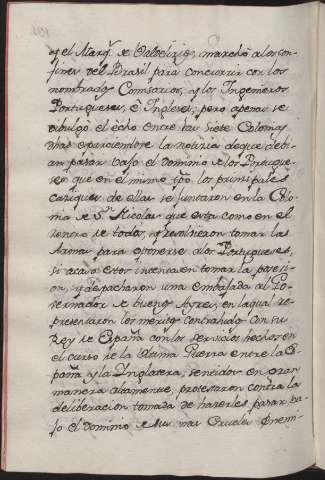 y el Marq.s de Valdelirios, marchó a los con-
fines del Brasil para concurrir con los
nombrados Comisarios, y los Ingenieros
Portugueses, é Ingleses; pero apenas se
dibulgó el écho entre las Siete Colonias
dhas esparciendose la noticia de que debi-
an pasar bajo el dominio de los Portugue-
ses que en el mismo tpo. los principales
Caziques de ellas se juntaron en la Colo-
nia de S.n Nicolas que esta como en el
centro de todas, y resolvieron tomar las
Armas para oponerse a los Portugueses,
si acaso estos intentasen tomar la posesi-
on, y despacharon una embajada al Go-
vernador de buenos Ayres, en la qual re-
presentaron los meritos contrahidos con su
Rey de España con los servicios hechos en
el curso de la Ultima Guerra entre la Es-
paña y la Ynglaterra, sentidos en gran
manera altamente, protestaron contra la
deliberacion tomada de hazerles pasar ba-
jo el dominio de sus mas crueles Enemi-